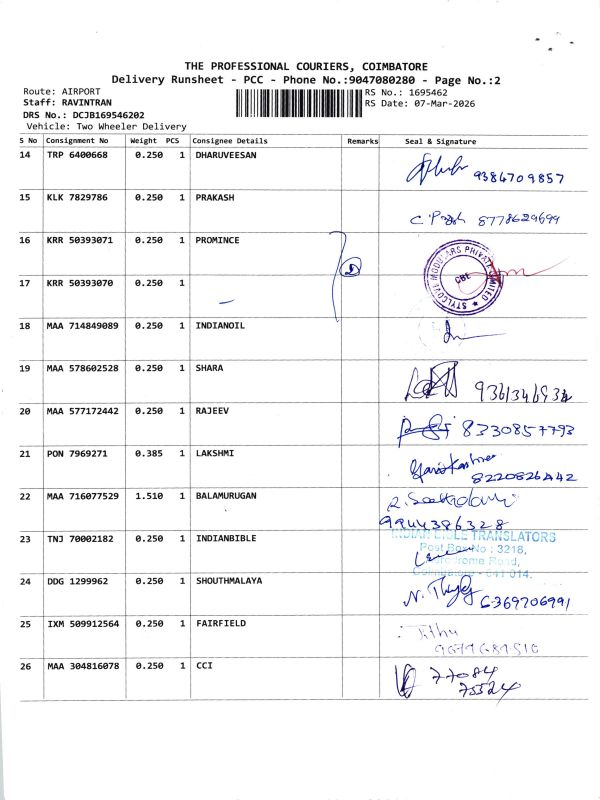 THE PROFESSIONAL COURIERS, COIMBATORE
Delivery Runsheet - PCC - Phone No.:9047080280 - Page No.:2
Route: AIRPORT
RS No.: 1695462
Staff: RAVINTRAN
RS Date: 07-Mar-2026
DRS No.: DCJB169546202
Vehicle: Two Wheeler Delivery
S No Consignment No Weight PCS Consignee Details Remarks Seal & Signature
14 TRP 6400668 0.250 1 DHARUVEESAN 9384709857
15 KLK 7829786 0.250 1 PRAKASH 8778629699
16 KRR 50393071 0.250 1 PROMINCE
17 KRR 50393070 0.250 1
18 MAA 714849089 0.250 1 INDIANOIL
19 MAA 578602528 0.250 1 SHARA
20 MAA 577172442 0.250 1 RAJEEV 8330857793
21 PON 7969271 0.385 1 LAKSHMI
22 MAA 716077529 1.510 1 BALAMURUGAN
9944386328
23 TNJ 70002182 0.250 1 INDIANBIBLE
INDIAN BIBLE TRANSLATORS
Post Box No : 3218,
Aerodrome Road,
Coimbatore - 641 014.
24 DDG 1299962 0.250 1 SHOUTHMALAYA 6369706991
25 IXM 509912564 0.250 1 FAIRFIELD
26 MAA 304816078 0.250 1 CCI 77084
75524